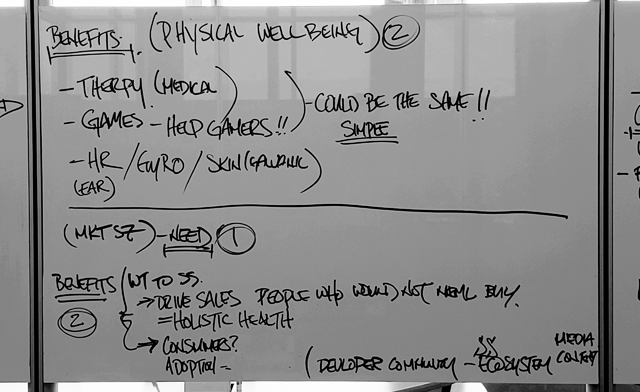 BENEFITS. (PHYSICAL WELLBEING) 2
- THERPY (MEDICAL)
- GAMES - HELP GAMERS!! - COULD BE THE SAME!!
SIMPLE
- HR / GYRO / SKIN (GALVANIC)
(EAR)
(MKT SZ) - NEED 1
BENEFITS (WT TO SS.
2 → DRIVE SALES PEOPLE WHO WOULD NOT NORML BUY.
= HOLISTIC HEALTH
→ CONSUMERS?
ADOPTION -
(DEVLOPER COMMUNITY - ECOSYSTEM
MEDIA
CONTENT